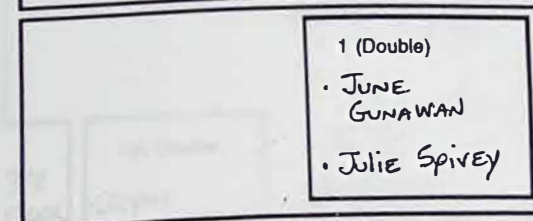 1 (Double)
· JUNE
GUNAWAN
· Julie Spivey